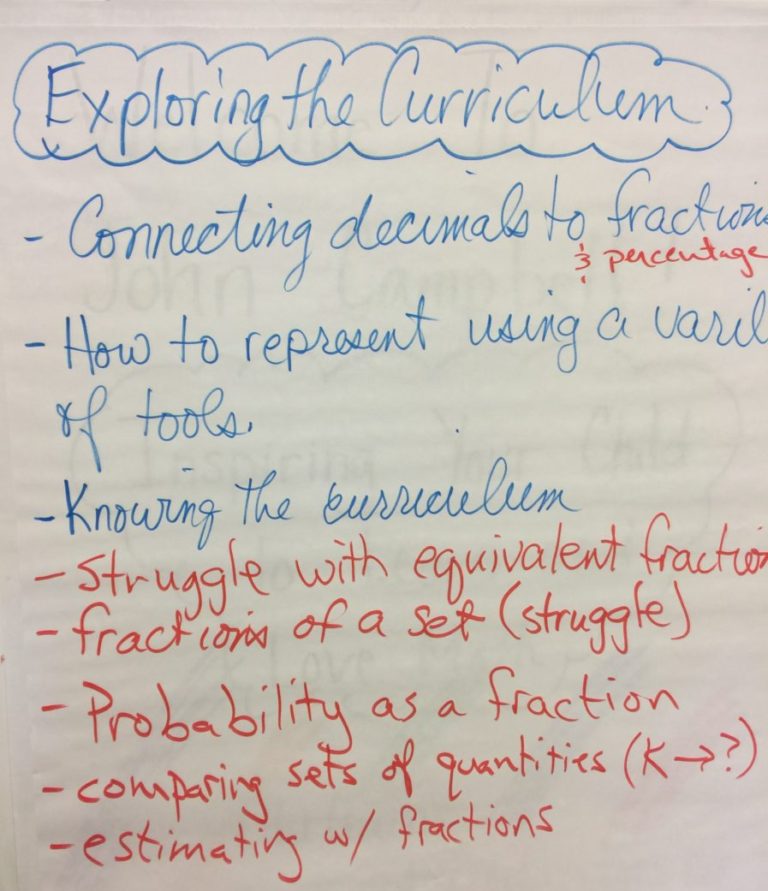 Exploring the Curriculum.
- Connecting decimals to fractions
& percentage
- How to represent using a varie
of tools.
- Knowing the curriculum
- struggle with equivalent fraction
- fractions of a set (struggle)
- Probability as a fraction
- comparing sets of quantities (K→?)
- estimating w/ fractions
Welcome To
John Campbell
Inspiring Your Child
to
Love Math